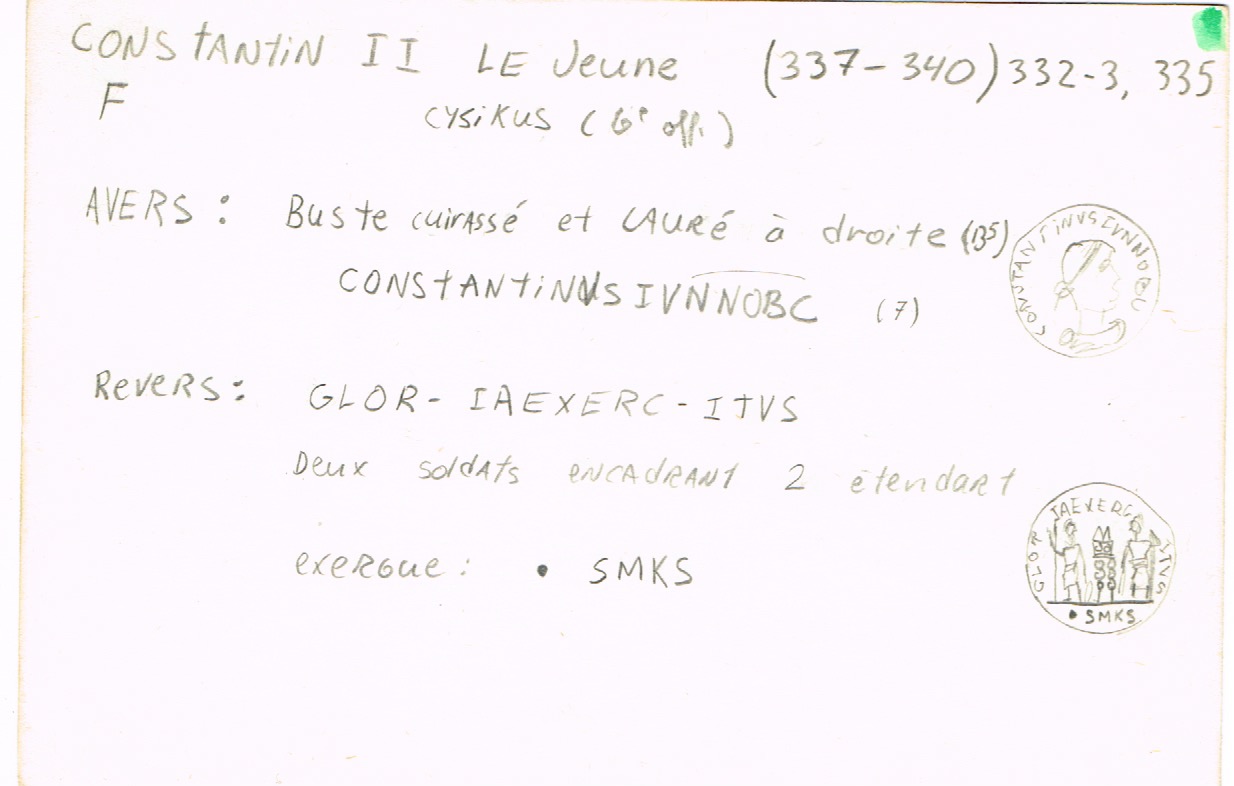 CONSTANTIN II LE Jeune (337-340) 332-3, 335
F
CYSIKUS (6e off.)
AVERS : Buste cuirassé et LAURé à droite (B5)
CONSTANTINUS IVNNOBC (7)
CONSTANTINVSIVNNOBC
Revers : GLOR- IAEXERC-ITVS
Deux soldats encadrant 2 étendart
GLOR IAEXERC ITVS
exergue : • SMKS
• SMKS